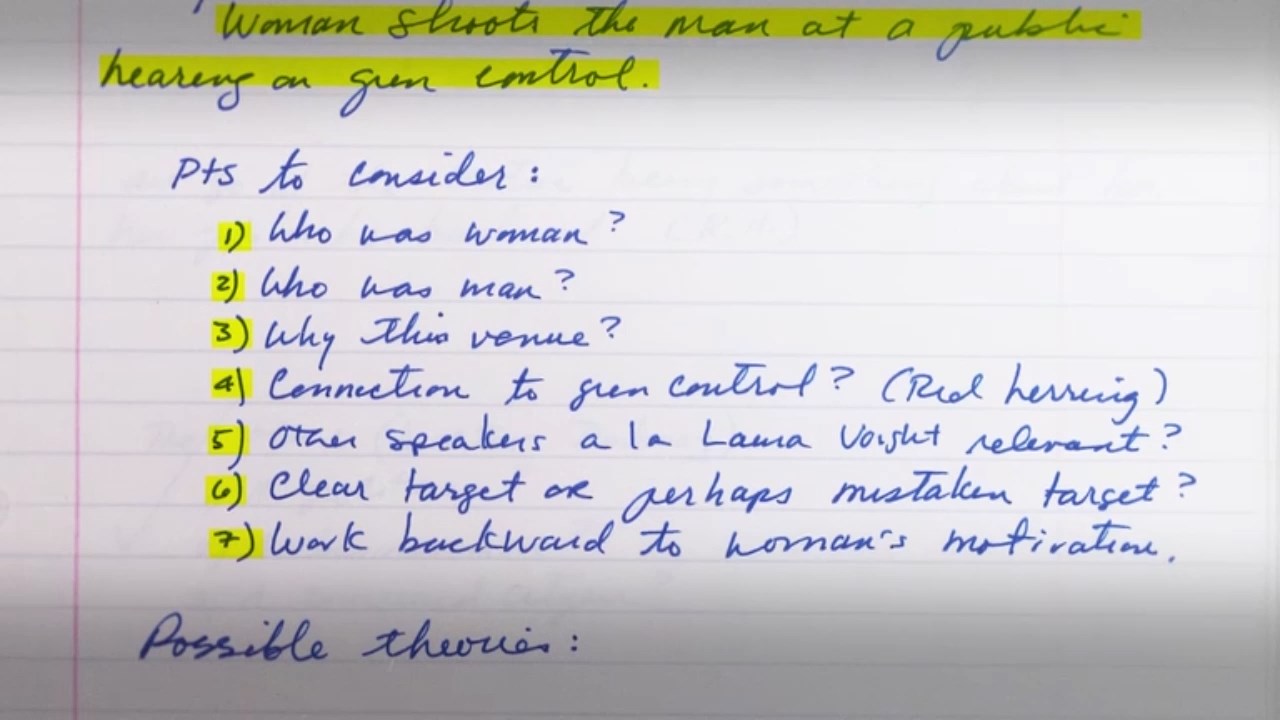 Woman shoots the man at a public
hearing on gun control.
Pts to consider:
1) Who was woman?
2) Who was man?
3) Why this venue?
4) Connection to gun control? (Red herring)
5) Other speakers a la Laura Voight relevant?
6) Clear target or perhaps mistaken target?
7) Work backward to woman's motivation.
Possible theories: